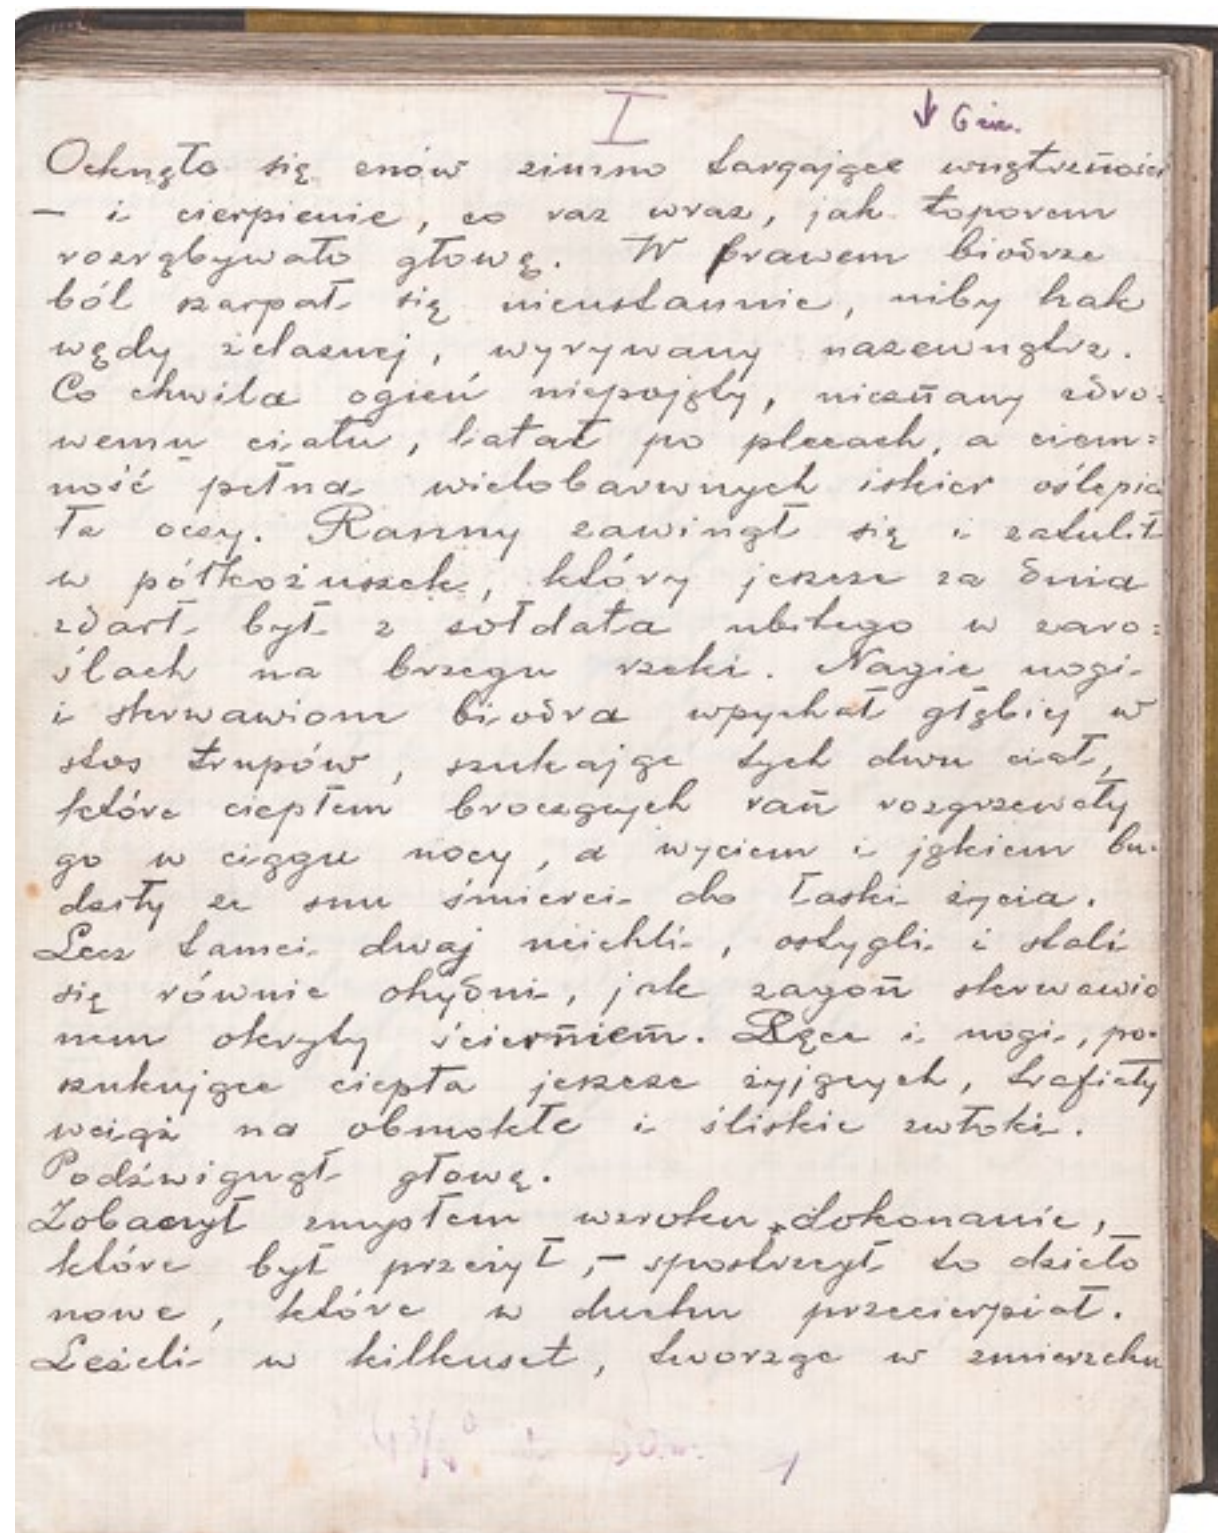 I
Ocknęło się znów zimno targające wnętrzności
— i cierpienie, co raz wraz, jak toporem
rozrąbywało głowę. W prawem biodrze
ból szarpał się nieustannie, niby hak
wędy żelaznej, wyrywany nazewnątrz.
Co chwila ogień niepojęty, nieznany zdro=
wemu ciału, latał po plecach, a ciem=
ność pełna wielobarwnych iskier oślepia
ła oczy. Ranny zawinął się i zatulił
w półkożuszek, który jeszcze za dnia
zdarł był z sołdata ubitego w zaro=
ślach na brzegu rzeki. Nagie nogi
i skrwawione biodra wpychał głębiej w
stos trupów, szukając tych dwu ciał,
które ciepłem broczących ran rozgrzewały
go w ciągu nocy, a wyciem i jękiem bu-
dziły ze snu śmierci do łaski życia.
Lecz tamci dwaj ucichli, ostygli i stali
się równie ohydni, jak zagon skrwawio
nem okryty ścierniem. Ręce i nogi, po-
szukujące ciepła jeszcze żyjących, trafiały
wciąż na obmokłe i śliskie zwłoki.
Podźwignął głowę.
Zobaczył zmysłem wzroku dokonanie,
które był przeżył, – spostrzegł to dzieło
nowe, które w duchu przecierpiał.
Leżeli w kilkuset, tworząc w zmierzchu
1